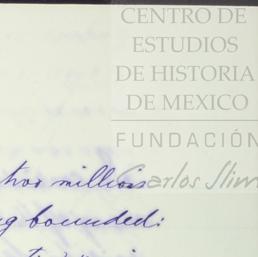 CENTRO DE
ESTUDIOS
DE HISTORIA
DE MEXICO
FUNDACIÓN
Carlos Slim
two millions
bounded: